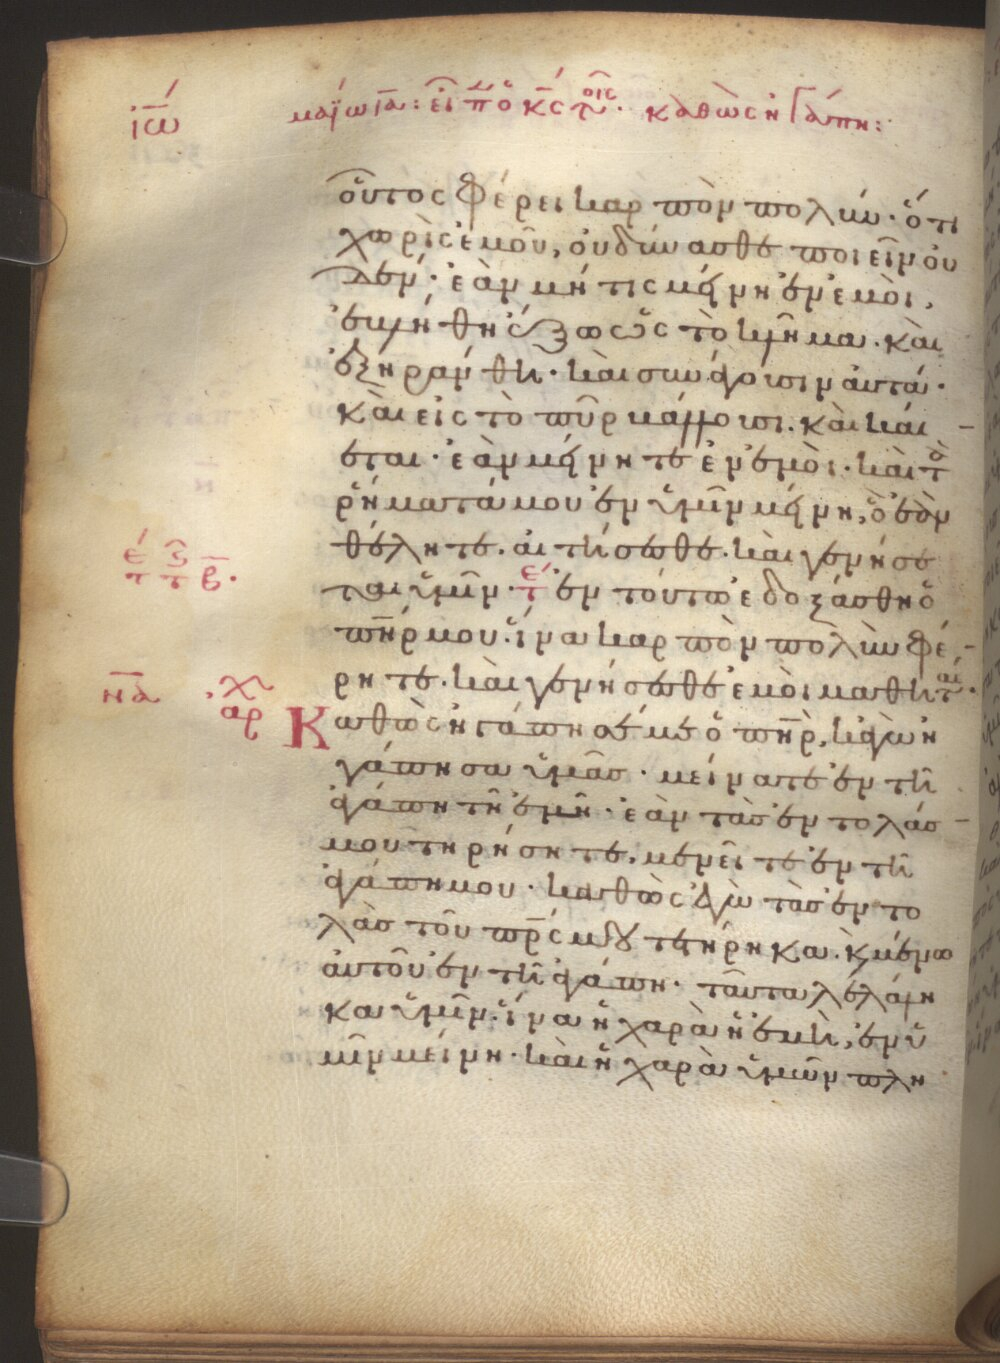 ἰω̅
μαΐω ια̅: εἶπ ὁ κς τοῖς. καθὼς ἠγάπη:
οὗτος φέρει καρπὸν πολύν· ὅτι
χωρὶς ἐμοῦ, οὐ δύνασθε ποιεῖν οὐ
δέν· ἐὰν μή τις μένη ἐν ἐμοὶ,
ἐβλήθη ἔξω ὡς τὸ κλῆμα. καὶ
ἐξηράνθη· καὶ συνάγουσιν αυτά·
καὶ εἰς τὸ πῦρ βάλλουσι. καὶ καί
εται· ἐὰν μένητε ἐν ἐμοὶ· καὶ τὰ
ῥήματά μου ἐν ὑμῖν μένη, ὃ ἐὰν
θέλητε. αἰτήσεσθε. καὶ γενήσε
ται ὑμῖν· τε ἐν τούτω ἐδοξάσθη ὁ
ε τ ζ τ β·
πη̅ρ μου. ἵνα καρπὸν πολὺν φέ
ρητε. καὶ γενήσεσθε ἐμοὶ μαθηταί·
ηδ
αρχ
Καθὼς ἠγάπησέ με ὁ πη̅ρ, κἀγὼ ἠ
γάπησα ὑμᾶς· μείνατε ἐν τῆ
ἀγάπη τῆ ἐμῆ· ἐὰν τὰς ἐντολάς
μου τηρήσητε, μενεῖτε ἐν τῆ
ἀγάπη μου· καθὼς ἐγὼ τὰς ἐντο
λὰς τοῦ πρ̅ς μου τετήρηκα. κ μένω
αὐτοῦ ἐν τῆ ἀγάπη· ταῦτα λελάλη
κα ὑμῖν. ἵνα ἡ χαρὰ ἡ ἐμὴ, ἐν ὑ
μῖν μείνη· καὶ ἡ χαρὰ ὑμῶν πλη